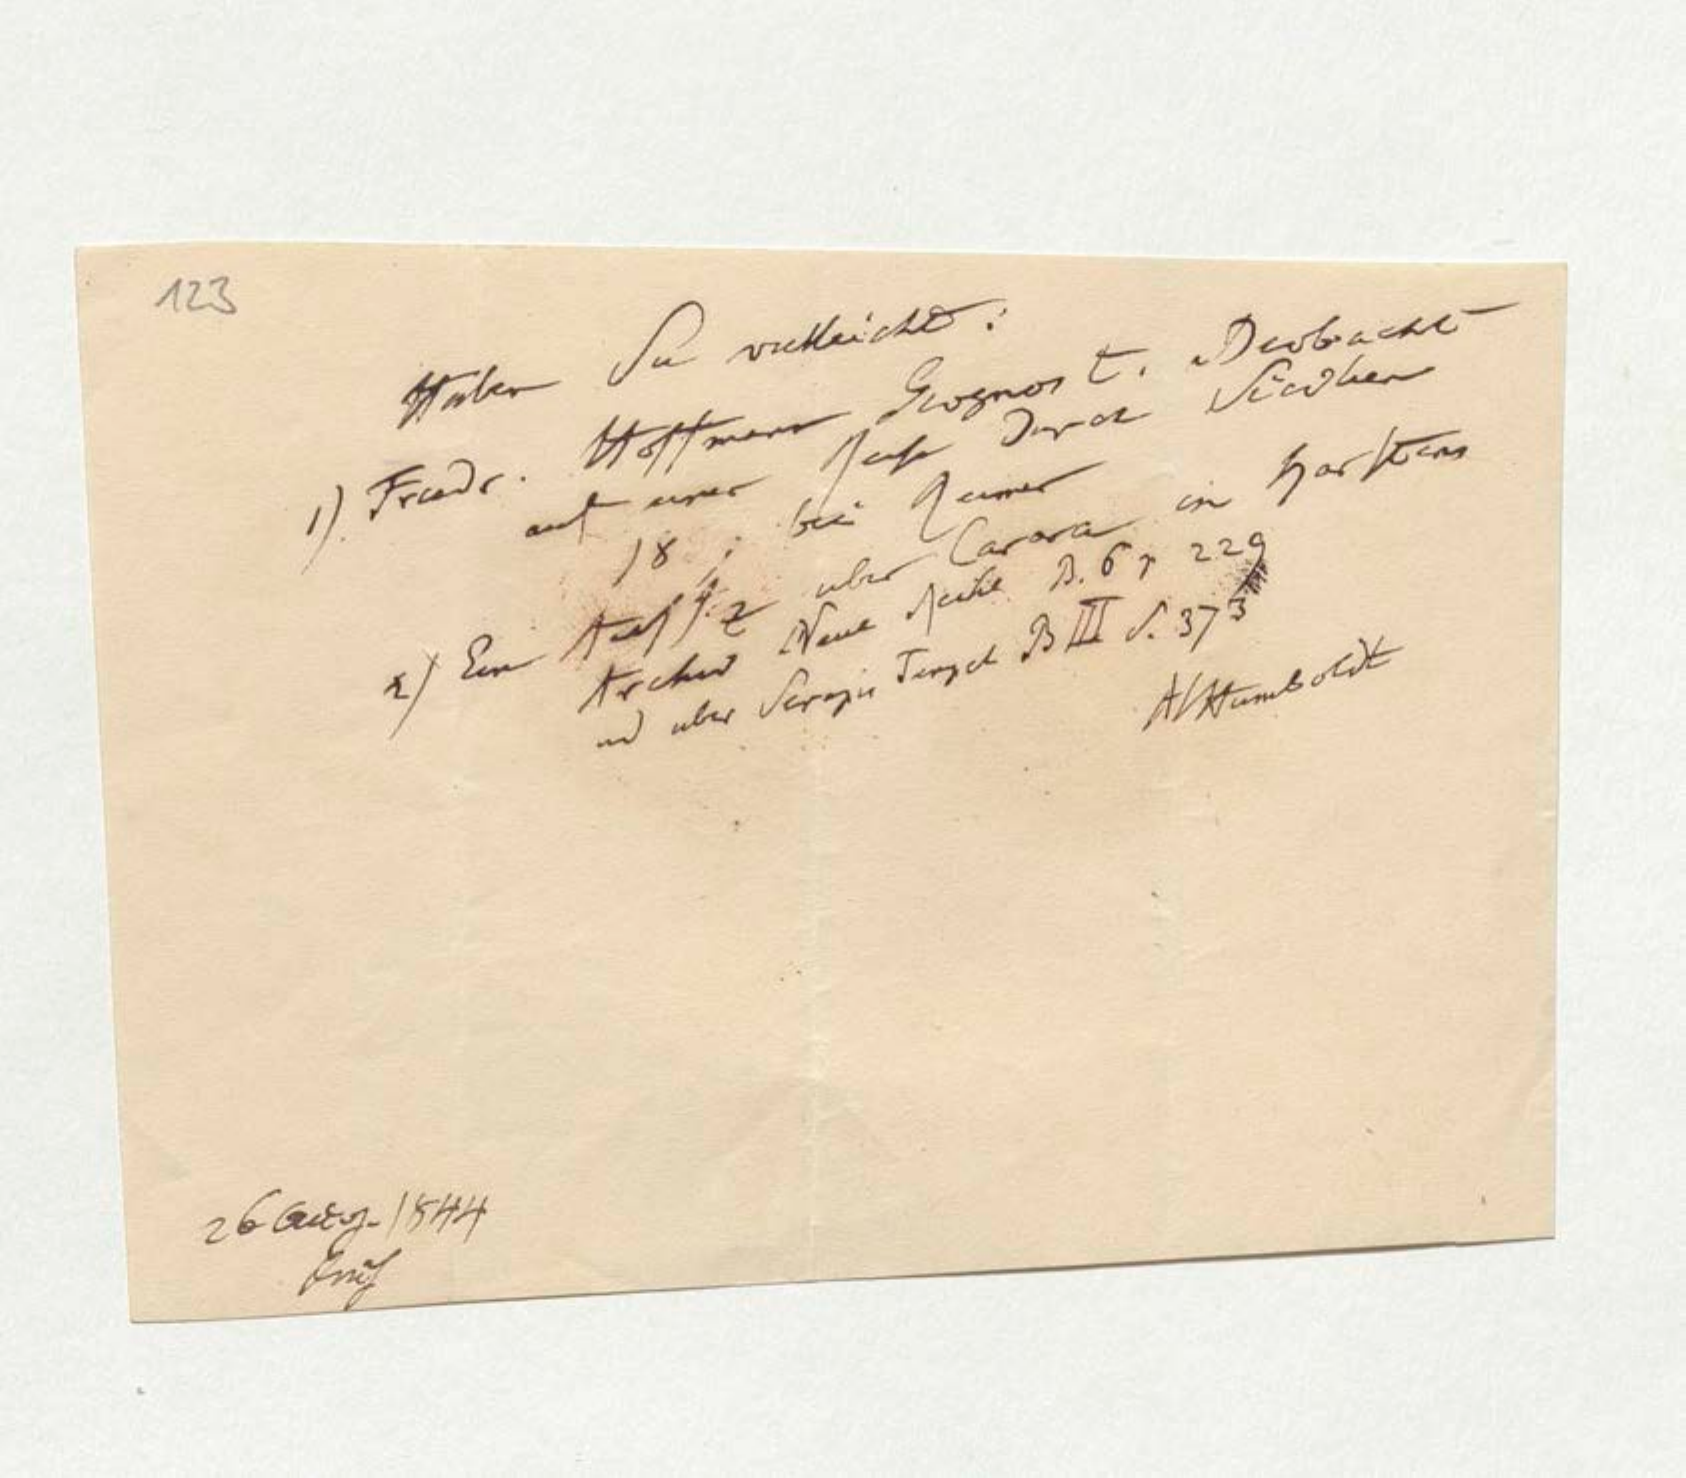 123
Haben Sie vielleicht:
1) Friedr. Hoffmann Geognost. Beobacht
auf einer Reise durch Sicilien
18 ; bei Reimer
2) Ein Aufsaz uber Carara in Karstens
Archiv Neue Reihe B. 6 p 229
und uber Serapis Tempel B III S. 373
AlHumboldt
26 Aug. 1844